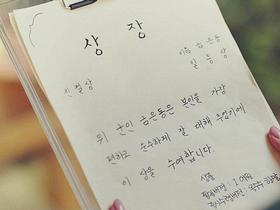 상 장
이름 금은동
친절상
일등상
위 군인 금은동은 본인을 가장
편하고 순수하게 잘 대해 주었기에
이 상을 수여합니다.
상품